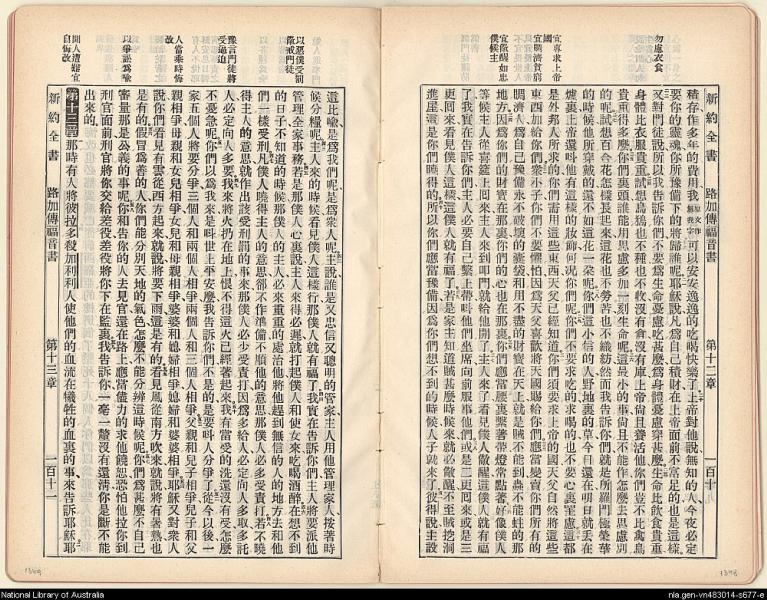 新約全書
路加傳福音書
第十二章
積存作多年的費用我可以安安逸逸的吃喝快樂了上帝對他說無知的人今夜必定
要你的靈魂你所豫備下的將歸誰呢耶穌說凡爲自己積財在上帝面前不富足的也是這樣
又對門徒說所以我告訴你們不要爲生命憂慮吃甚麼爲身體憂慮穿甚麼生命比飲食貴重
身體比衣服貴重試想烏鴉也不種也不收沒有倉沒有庫上帝尚且養活他你們豈不比禽鳥
貴重得多麼你們裏頭誰能用思慮多加一刻生命呢這最小的事尚且不能作怎麼去思慮別
的呢試想百合花怎樣長起來這花也不勞苦也不織紡然而我告訴你們就是所羅門極榮華
的時候他所穿戴的還不如這花一朵呢你們這小信的人野地裏的草今日還在明日就丟在
爐裏上帝還叫他有這樣的妝飾何況你們呢你們不要求吃的求喝的也不要心裏罣慮這都
是外邦人所求的你們需用這些東西天父已經知道你們須要求上帝的國天父自然將這些
東西加給你們衆小子你們不要懼怕因爲天父喜歡將天國賜給你們應當變賣你們所有的
賙濟人爲自己豫備永不破壞的囊袋和用不盡的財寶在天上就是賊不能到蟲不能蛀的那
地方因爲你們的財寶在那裏你們的心也在那裏你們應當腰裏繫著帶燈常點著好像僕人
等候主人從喜筵上回來主人來到叩門就給他開了主人來了看見僕人儆醒這僕人就有福
了我實在告訴你們主人必要自己繫上帶叫他們坐席向前服事他們或是二更回來或是三
更回來看見僕人這樣這僕人就有福了若是家主知道賊甚麼時候來就必儆醒不至賊挖洞
進屋這是你們曉得的所以你們應當豫備因爲你們想不到的時候人子就來了彼得說主設
勿慮衣食
宜專求上帝國
宜賙濟貧窮
宜儆醒如忠僕候主
這比喻是爲我們呢是爲衆人呢主說誰是又忠信又聰明的管家主人用他管理家人按著時
候分糧呢主人來的時候看見僕人這樣行那僕人就有福了我實在告訴你們主人將要派他
管理全家事務若是那僕人心裏說主人來得必遲就打起僕人和使女來吃喝酒醉在想不到
的日子不知道的時候那僕人的主人必來重重的處治他將他趕到無信的人的地方去和他
們一樣受刑凡僕人曉得主人的意思卻不作準備不順他的意思那僕人必多受責打若不曉
得主人的意思就作出該受刑罰的事來那僕人必少受責打因爲多給人必定向人多取多託
人必定向人多要我來將火扔在地上恨不得這火已經著起來我有當受的洗還沒有受怎麼
不憂急呢你們以爲我來是叫世上平安麼我告訴你們不是的是要叫人分爭了從今以後一
家五個人將要分爭三個人和兩個人相爭兩個人和三個人相爭父親和兒子相爭兒子和父
親相爭母親和女兒相爭女兒和母親相爭婆婆和媳婦相爭媳婦和婆婆相爭耶穌又對衆人
說你們看見有雲從西方起來就說將要下雨這是有的看見風從南方吹來就說將有暑熱也
是有的假冒爲善的人你們能分別天地的氣色怎麼不能分辨這時候呢你們爲甚麼不自己
審量那是公義的事呢你和告你的人去見官還在路上應當儘力的求他饒恕恐怕他拉你到
刑官面前刑官將你交給差役差役將你下在監裏我告訴你一毫一釐沒有還清你是斷不能
出來的
第十三章那時有人將彼拉多殺加利利人使他們的血流在犧牲的血裏的事來告訴耶穌耶
以惡僕受罰儆戒門徒
豫言門徒將受逼迫
人當乘時悔改
以爭訟爲喩
聞人遭難宜自悔改
新約全書
路加傳福音書
第十三章
National Library of Australia
nla.gen-vn483014-s677-e